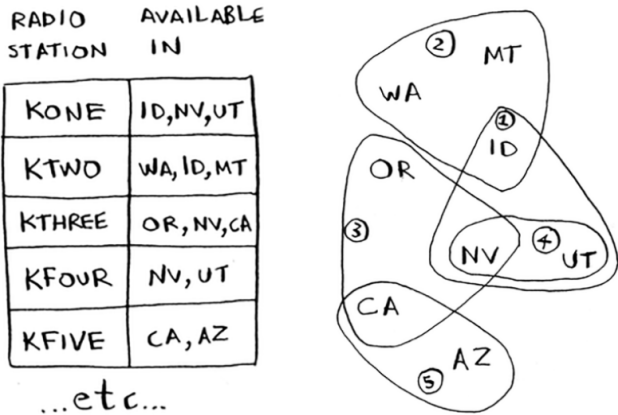 RADIO STATION
AVAILABLE IN
KONE
ID,NV,UT
KTWO
WA,ID,MT
KTHREE
OR,NV,CA
KFOUR
NV,UT
KFIVE
CA,AZ
...etc...
2
MT
WA
1
ID
OR
3
NV
4
UT
CA
AZ
5